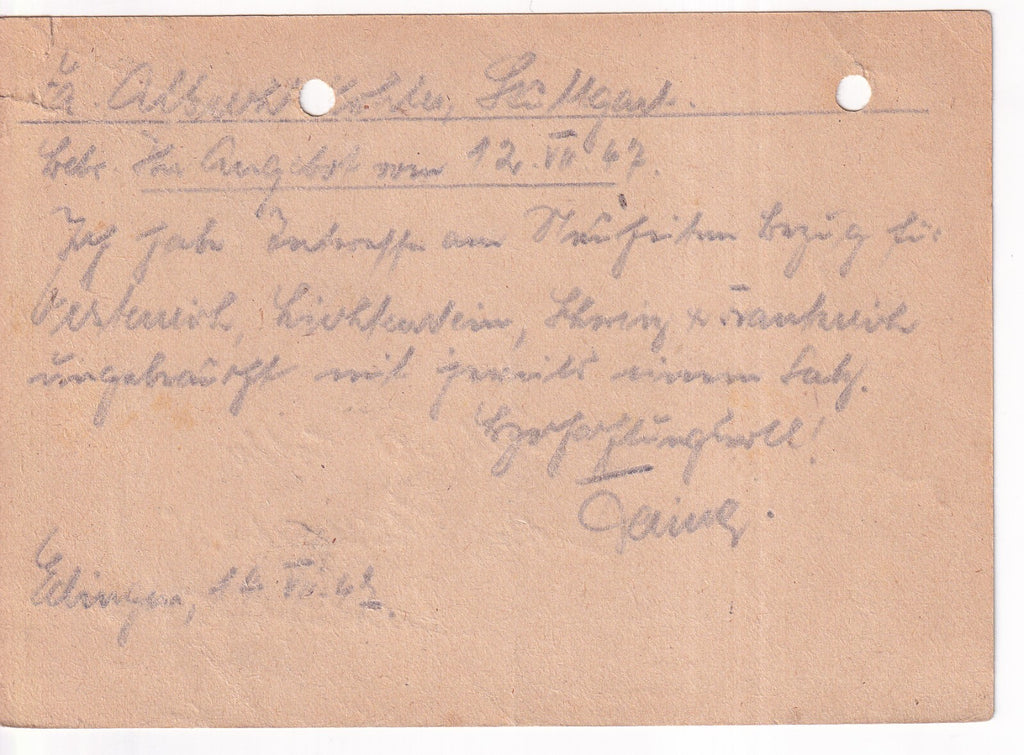 Albrecht Kohler, Stuttgart.
Betr. Ihr Angebot vom 12. VII 47.
Ich habe Interesse am Neuheiten Bezug für
Oesterreich, Lichtenstein, Schweiz u. Frankreich
ungebraucht mit jeweils einem Satz.
Hochachtungsvoll!
Edingen, VII. 47.